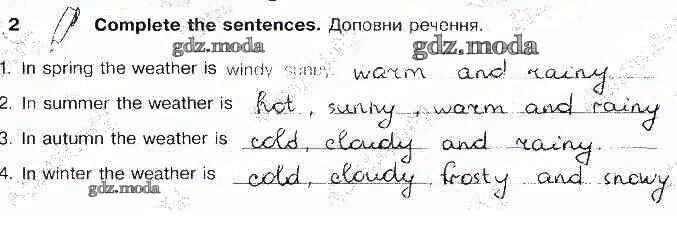 2 Complete the sentences. Доповни речення.
gdz.moda gdz.moda
1. In spring the weather is windy sunny warm and rainy
2. In summer the weather is hot, sunny, warm and rainy
3. In autumn the weather is cold, cloudy and rainy.
4. In winter the weather is cold, cloudy, frosty and snowy
gdz.moda